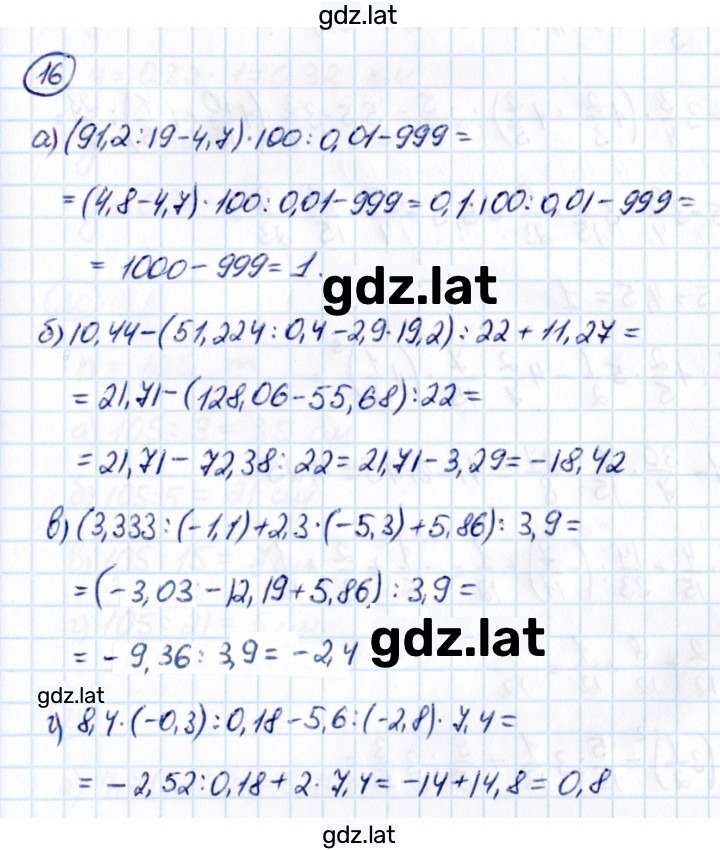 gdz.lat
16
а) (91,2:19-4,7)·100:0,01-999=
=(4,8-4,7)·100:0,01-999=0,1·100:0,01-999=
= 1000-999=1.
gdz.lat
б) 10,44-(51,224:0,4-2,9·19,2):22+11,27=
=21,71-(128,06-55,68):22=
=21,71-72,38:22=21,71-3,29=-18,42
в) (3,333:(-1,1)+2,3·(-5,3)+5,86):3,9=
=(-3,03-12,19+5,86):3,9=
=-9,36:3,9=-2,4
gdz.lat
gdz.lat
г) 8,4·(-0,3):0,18-5,6:(-2,8)·7,4=
=-2,52:0,18+2·7,4=-14+14,8=0,8
gdz.lat